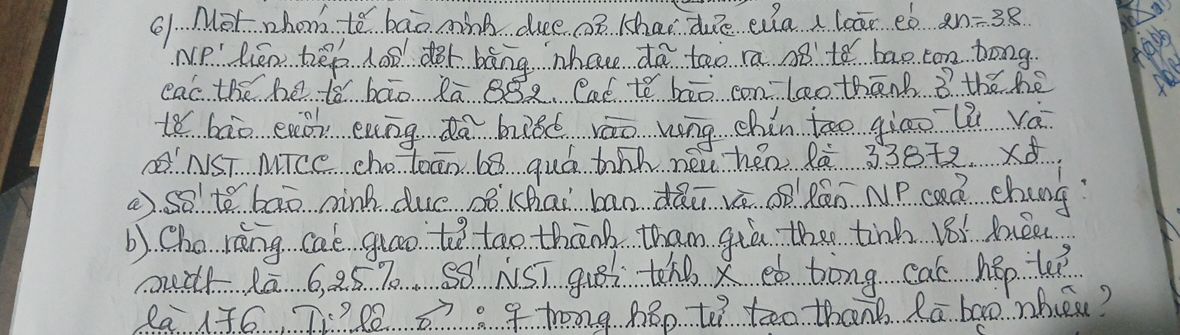 6) Một nhóm tế bào sinh dục sơ khai đực của 1 loài có 2n = 38
NP' liên tiếp 1 số đợt bằng nhau đã tạo ra số tế bào con trong
các thế hệ tế bào là 882. Các tế bào con tạo thành ở thế hệ
tế bào cuối cùng đã bước vào vùng chín tạo giao tử và
số NST MTCC cho toàn bộ quá trình nêu trên là 33872. Xđ
a) Số tế bào sinh dục sơ khai ban đầu và số lần NP của chúng:
b) Cho rằng các giao tử tạo thành tham gia thụ tinh với hiệu
suất là 6,25%. Số NST giới tính X có trong các hợp tử
là 176. Tỉ lệ ♂ : ♀ trong hợp tử tạo thành là bao nhiêu?